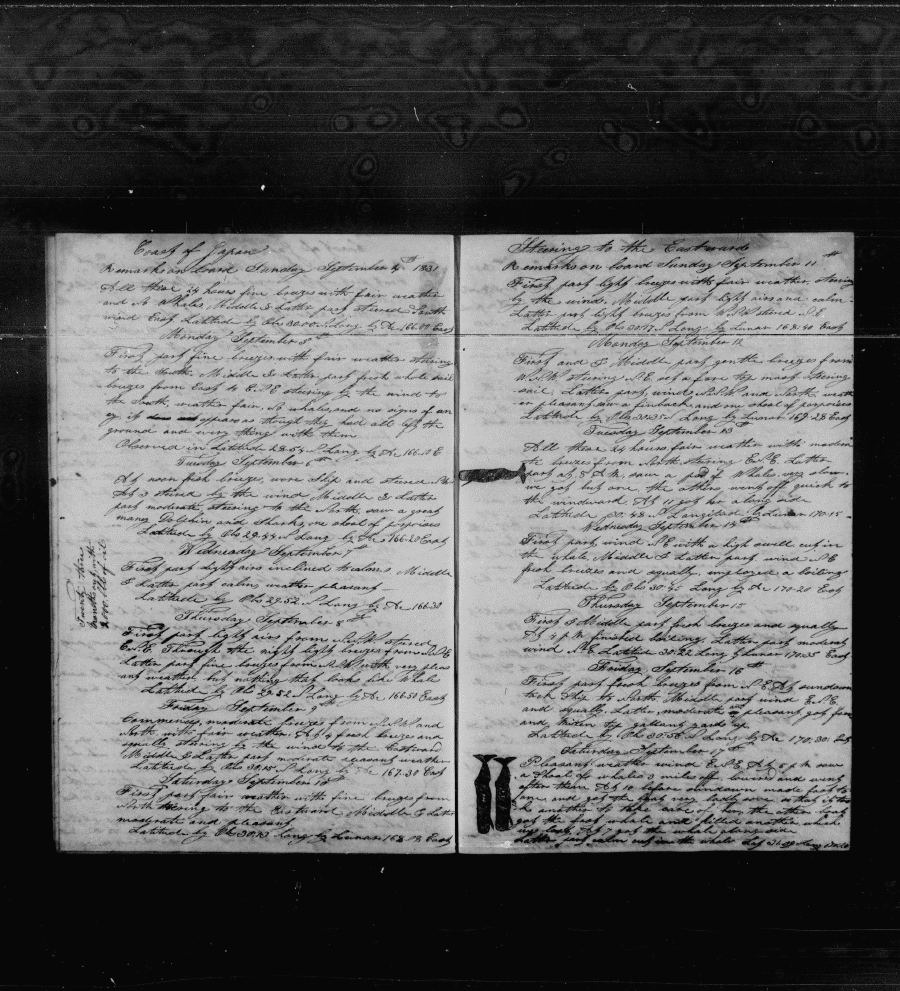 Coast of Japan
Remarks on board Sunday September 4th 1831
All these 24 hours fine breezes with fair weather
and no Whales Middle & Latter part steered South
wind East Latitude by Obs 30.00 N Long by Ar 166.00 East
Monday September 5th
First part fine breezes with fair weather steering
to the South. Middle & Latter part fresh whole sail
breezes from East to E.S.E steering by the wind to
the South, weather fair. No whales and no signs of an
y it appears as though they had all left the
ground and every thing with them
Observed in Latitude 28.54 N Long by Ar 166.10 E
Tuesday September 6th
At noon fish breeze, wore Ship and steered
At 3 steered by the wind Middle & Latter
part moderate, steering to the North, saw a great
many Dolphin and Sharks, one shoal of porpoises
Latitude by Obs 29.44 N Long by Ar 166.20 East
Wednesday September 7th
First part light airs inclined to calms, Middle
& Latter part calm, weather pleasant
Latitude by Obs 29.52 N Long by Ar 166.30
Twenty three
months out with
2000 bbl of oil
Thursday September 8th
First part light airs from steered
E. Through the night light breezes from
Latter part fine breezes from with very pleas
ant weather but nothing that looks like Whale
Latitude by Obs 29.52 N Long by Ar 166.50 East
Friday September 9th
Commences moderate breezes from and
North with fair weather. At 4 fresh breezes and
squally, steering by the wind to the Eastward
Middle & Latter part moderate pleasant weather
Latitude by Obs 30.15 N Long by Ar 167.30 East
Saturday September 10th
First part fair weather with fine breezes from
North steering to the Eastward Middle & Latter
moderate and pleasant
Latitude by Obs 30.13 Long by Lunar 168.12 East
Steering to the Eastward
Remarks on board Sunday September 11th
First part light breezes with fair weather, steering
by the wind. Middle part light airs and calm
Latter part light breezes from W.S.W steered
Latitude by Obs 30.27 N Long by Lunar 168.40 East
Monday September 12
First and & Middle part gentle breezes from
W.S.W steering N.E, set a fore top mast steering
sail. Latter part, wind and North, weath
er pleasant, saw a finback and one shoal of porpoises
Latitude by Obs 30.35 Long by Lunar 169.28 East
Tuesday September 13th
All these 24 hours fair weather with modera
te breezes from North steering E.S.E. Latter
part at 8 A.M, saw a pod of Whales, very slow.
we got but one the others went off quick to
the windward At 11 got her along side
Latitude 30.48 N Longitude by Lunar 170.15
Wednesday September 14th
First part, wind N.E with a high swell cut in
the whale, Middle & Latter part wind N.E
fresh breezes and squally, employed a boiling
Latitude by Obs 30. Long by Ar 170.20 East
Thursday September 15
First & Middle part fresh breezes and squally
At 4 P.M. finished boiling. Latter part moderate
wind N.E Latitude 30.22 Long by Lunar 170.35 East
Friday September 16th
First part fresh breezes from N.E At sundown
tack Ship to North Middle part wind E.N.E.
and squally Latter, moderate & pleasant, got fore
and mizen top gallant yards up
Latitude by Obs 30.56 N Long by Ar 170.30 East
Saturday September 17th
Pleasant weather wind E.N.E At 5 P.M saw
a shoal of whales 3 miles off lowered and went
after them At 1/2 before sundown made fast to
one and got the boat very badly stove so that it too
k another to take care of her, the other boat
got the fast whale and killed another which
we lost, At 7 got the whale along side
Latter part calm cut in the whale Lat 31.09 Long